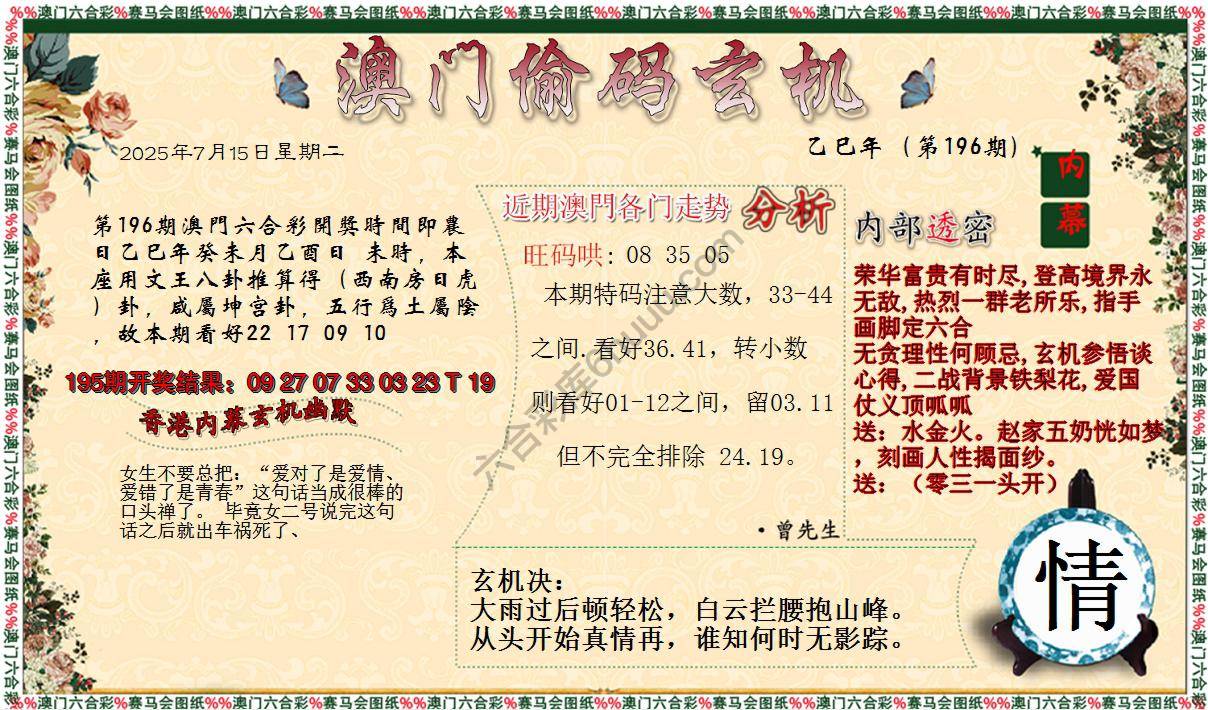 %%澳门六合彩%赛马会图纸%%澳门六合彩%赛马会图纸%%澳门六合彩%赛马会图纸%%澳门六合彩%赛马会图纸%%澳门六合彩%赛马会图纸%%澳门六合彩%赛马会图纸
澳门偷码玄机
2025年7月15日星期二
乙巳年（第196期）
内
幕
第196期澳門六合彩開獎時間即農
日乙巳年癸未月乙酉日 未時，本
座用文王八卦推算得（西南房日虎
）卦，咸屬坤宫卦，五行爲土屬陰
，故本期看好22 17 09 10
195期开奖结果：09 27 07 33 03 23 T 19
香港内幕玄机幽默
女生不要总把：“爱对了是爱情、
爱错了是青春”这句话当成很棒的
口头禅了。 毕竟女二号说完这句
话之后就出车祸死了、
近期澳門各门走势 分析
旺码哄: 08 35 05
本期特码注意大数，33-44
之间.看好36.41，转小数
则看好01-12之间，留03.11
但不完全排除 24.19。
·曾先生
内部透密
荣华富贵有时尽,登高境界永
无敌,热烈一群老所乐,指手
画脚定六合
无贪理性何顾忌,玄机参悟谈
心得,二战背景铁梨花,爱国
仗义顶呱呱
送：水金火。赵家五奶恍如梦
，刻画人性揭面纱。
送：（零三一头开）
玄机决：
大雨过后顿轻松，白云拦腰抱山峰。
从头开始真情再，谁知何时无影踪。
情
%%澳门六合彩%赛马会图纸%%澳门六合彩%赛马会图纸%%澳门六合彩%赛马会图纸%%澳门六合彩%赛马会图纸%%澳门六合彩%赛马会图纸%%澳门六合彩%赛马会图纸